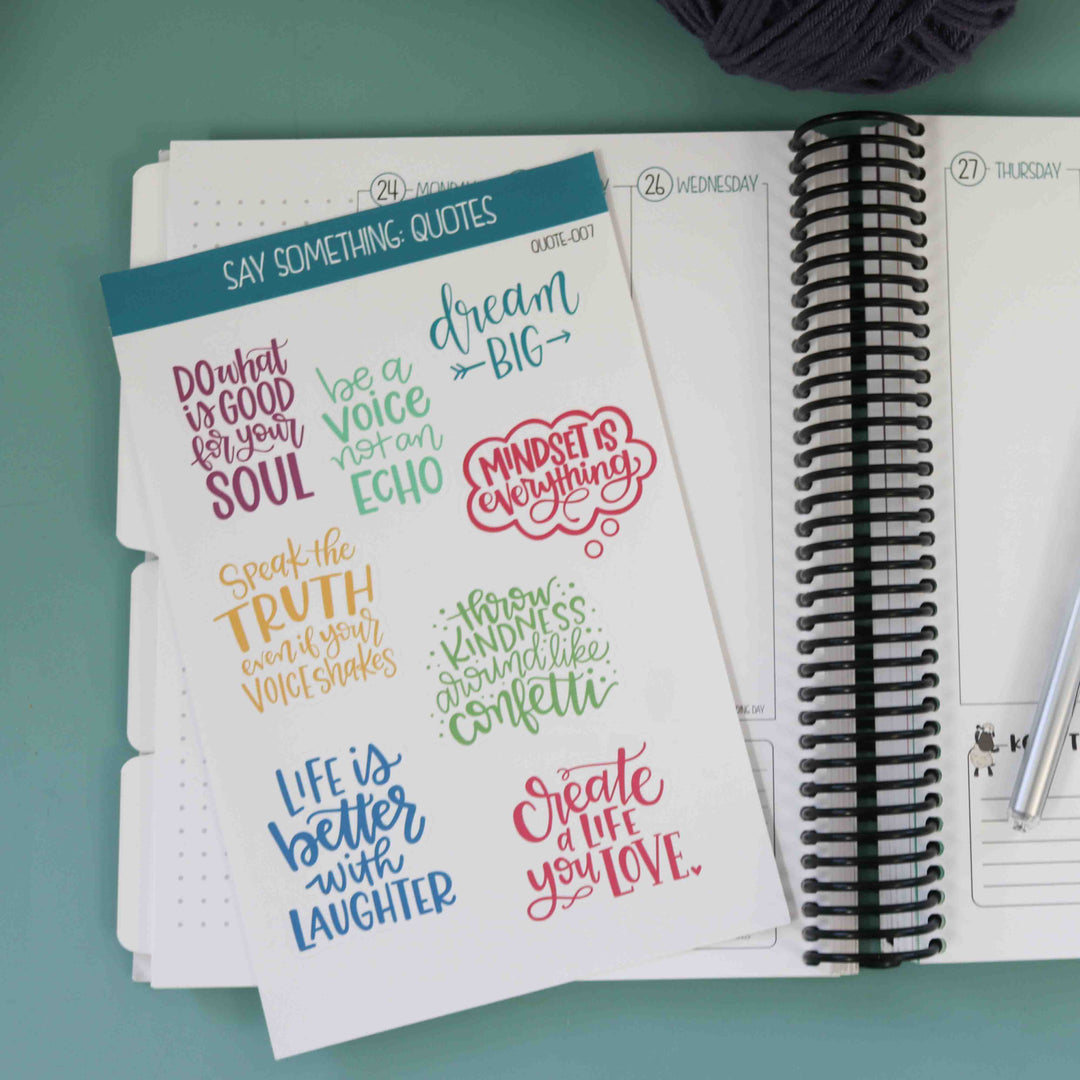 24 MONDAY
26 WEDNESDAY
27 THURSDAY
SAY SOMETHING: QUOTES
QUOTE-007
DO what
is GOOD
for your
SOUL
be a
VOICE
not an
ECHO
dream
BIG
MINDSET IS
everything
Speak the
TRUTH
even if your
VOICE shakes
throw
KINDNESS
around like
confetti
LIFE is
better
with
LAUGHTER
Create
a LIFE
you LOVE
DAY